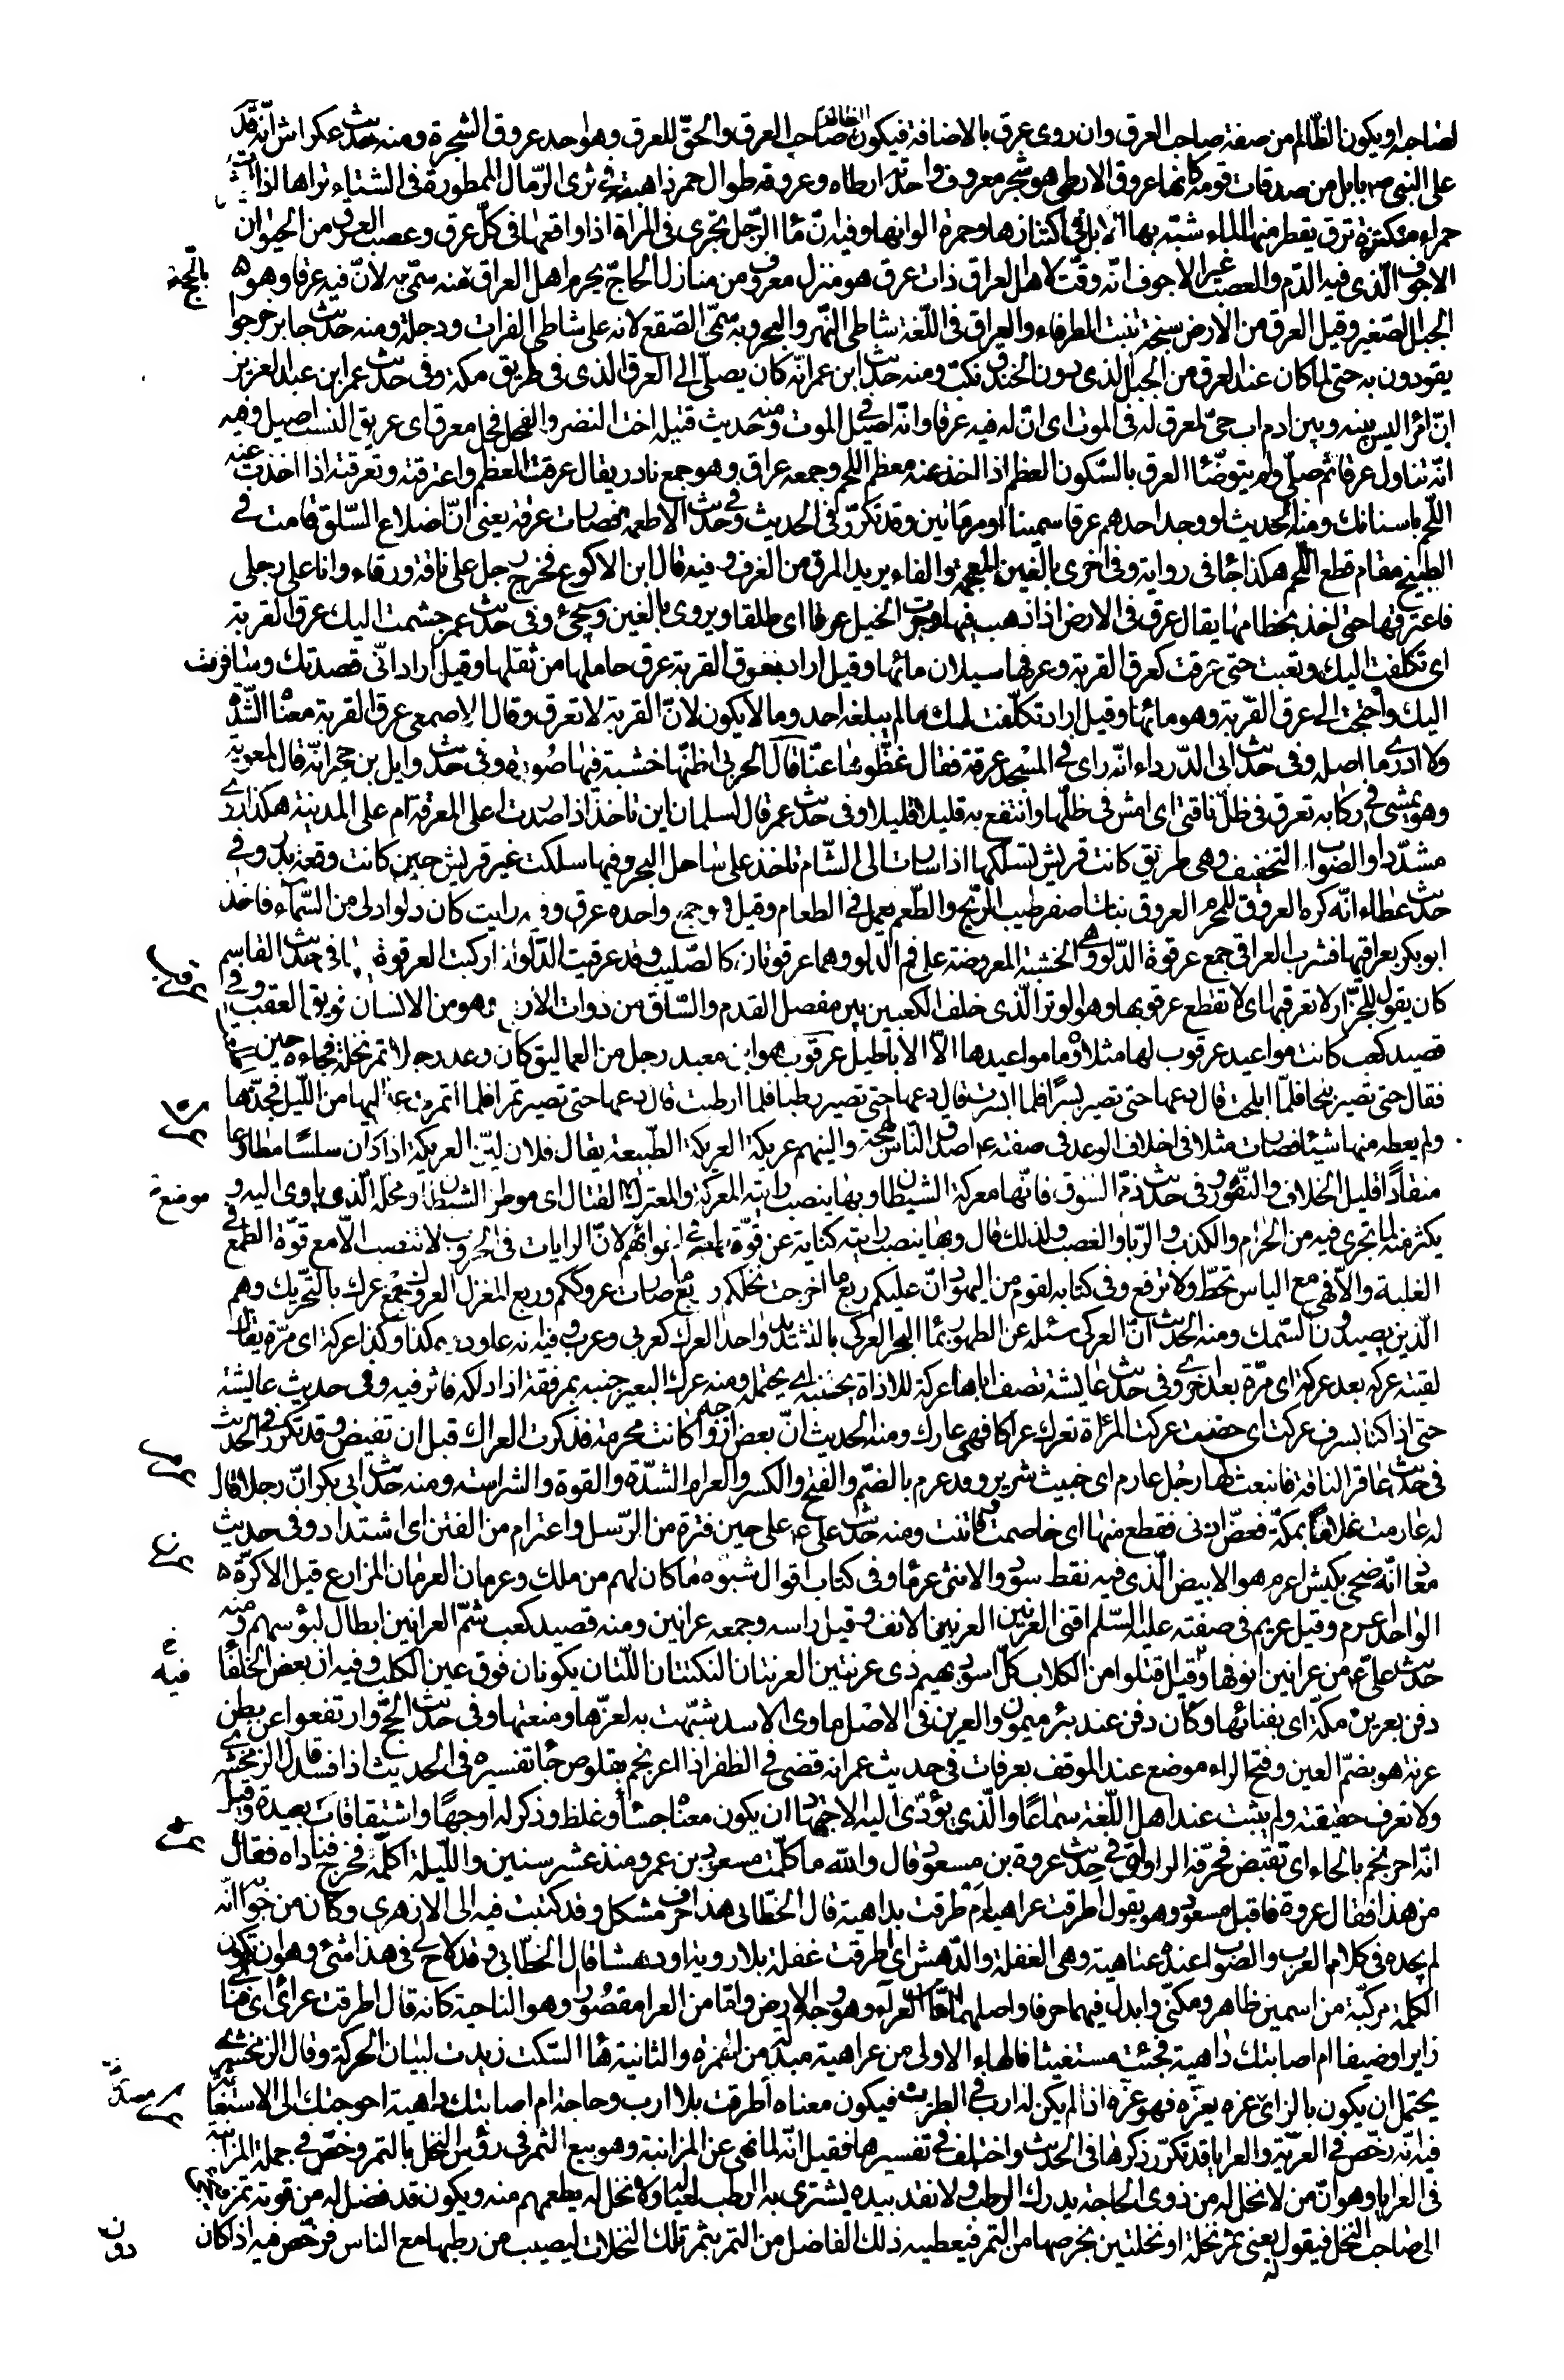 لصاحبه ويكون الظالم من صفة صاحب العرق وان روى عرق بالاضافة فيكون الظالم صاحب العرق والحق للعرق وهو احد عروق الشجرة ومنه حديث عكراش انه قدم
على النبي ص بابل من صدقات قومه كانها عروق الارطى هو شجر معروف واحدته ارطاه وعروقه طوال حمر ذاهبة في ثرى الرمال الممطورة في الشتاء تراها اذا اثيرت
حمراء مكتنزة ترق يقطر منها الماء شبه بها الابل في اكتنازها وحمرة الوانها وفيه ان ماء الرجل يجرى في المراة اذا واقعها في كل عرق وعصب العرق من الحيوان
الاجوف الذى فيه الدم والعصب غير الاجوف انه وقت لاهل العراق ذات عرق هو منزل معروف من منازل الحاج يحرم اهل العراق منه سمى به لان فيه عرقا وهو
الجبل الصغير وقيل العرق من الارض سبخة تنبت الطرفاء والعراق في اللغة شاطى النهر والبحر وبه سمى الصقع لانه على شاطى الفرات ودجلة ومنه حديث جابر خرجوا
يقودون به حتى لما كان عند العرق من الجبل الذى دون الخندق نكب ومنه حديث ابن عمر انه كان يصلى الى العرق الذى في طريق مكة وفى حديث عمر ابن عبد العزيز
ان امرا ليس بينه وبين ادم اب حى لمعرق له في الموت اى ان له فيه عرقا وانه اصيل في الموت ومنه حديث قتيلة اخت النضر والفحل فحل معرق اى عريق النسب اصيل وفيه
انه تناول عرقا ثم صلى ولم يتوضأ العرق بالسكون العظم اذا اخذ عنه معظم اللحم وجمعه عراق وهو جمع نادر يقال عرقت العظم واعترقته وتعرقته اذا اخذت عنه
اللحم باسنانك ومنه الحديث لو وجد احدهم عرقا سمينا او مرماتين وقد تكرر في الحديث وفي حديث الاطعمة فصارت عرقه يعنى ان اضلاع السلق قامت في
الطبيخ مقام قطع اللحم هكذا جاء في رواية وفى اخرى بالغين المعجمة والفاء يريد المرق من الغرف وفيه قال ابن الاكوع فخرج رجل على ناقة ورقاء وانا على رجلى
فاعترقتها حتى اخذ بخطامها يقال عرق في الارض اذا ذهب فيها وجرت الخيل عرقا اى طلقا ويروى بالغين وسيجئ وفى حديث عمر جشمت اليك عرق القربة
اى تكلفت اليك وتعبت حتى عرقت كعرق القربة وعرقها سيلان مائها وقيل اراد بعرق القربة عرق حاملها من ثقلها وقيل اراد انى قصدتك وسافرت
اليك واحتجت الى عرق القربة وهو مائها وقيل اراد تكلفت لك ما لم يبلغه احد وما لا يكون لان القربة لا تعرق وقال الاصمعى عرق القربة معناه الشدة
ولا ادرى ما اصله وفى حديث ابى الدرداء انه راى في المسجد عرقة فقال غطوها عنا قال الحربى اظنها خشبة فيها صورة وفى حديث وايل بن حجر انه قال لمعوية
وهو يمشى في ركابه تعرق في ظل ناقتى اى امش في ظلها وانتفع به قليلا قليلا وفى حديث عمر قال لسلمان اين تاخذ اذا صدرت اعلى المعرقة ام على المدينة هكذا روى
مشددا والصواب التخفيف وهى طريق كانت قريش تسلكها اذا سارت الى الشام تاخذ على ساحل البحر وفيها سلكت عير قريش حين كانت وقعة بدر وفي
حديث عطاء انه كره العروق للمحرم العروق نبات اصفر طيب الريح والطعم يعمل في الطعام وقيل هو جمع واحده عرق وفيه رايت كان دلوا دلى من السماء فاخذ
ابو بكر بعراقيها فشرب العراقى جمع عرقوة الدلو وهى الخشبة المعروضة على فم الدلو وهما عرقوتان كالصليب وقد عرقيت الدلو اذا ركبت العرقوة فيها في حديث القاسم
كان يقول للجزار لا تعرقبها اى لا تقطع عرقوبها وهو الوتر الذى خلف الكعبين بين مفصل القدم والساق من ذوات الاربع وهو من الانسان فويق العقب وفي
قصيد كعب كانت مواعيد عرقوب لها مثلا وما مواعيدها الا الاباطيل عرقوب هو ابن معبد رجل من العماليق كان وعد رجلا ثمر نخلة فجاءه حين
فقال حتى تصير بلحا فلما ابلحت قال دعها حتى تصير بسرا فلما ابسرت قال دعها حتى تصير رطبا فلما ارطبت قال دعها حتى تصير تمرا فلما اتمرت عمد اليها من الليل فجدها
ولم يعطه منها شيئا فصارت مثلا في اخلاف الوعد في صفته ع اصدق الناس لهجة والينهم عريكة العريكة الطبيعة يقال فلان لين العريكة اذا كان سلسا مطاوعا
منقادا قليل الخلاف والنفور وفى حديث ذم السوق فانها معركة الشيطان وبها ينصب رايته المعركة والمعترك القتال اى موطن الشيطان ومحله الذى ياوى اليه و
يكثر منه لما يجرى فيه من الحرام والكذب والربا والغصب ولذلك قال وبها ينصب رايته كناية عن قوة طمعه في اغوائهم لان الرايات في الحروب لا تنصب الا مع قوة الطمع في
الغلبة والا فهى مع الياس تحط ولا ترفع وفى كتابه لقوم من اليهود ان عليكم ربع ما اخرجت نخلكم وربع ما صادت عروككم وربع المغزل العروك جمع عرك بالتحريك وهم
الذين يصيدون السمك ومنه الحديث ان العركى سئله عن الطهور بماء البحر العركى بالتشديد واحد العرك كعربى وعرب وفيه انه عاوده كذا وكذا عركة اى مرة يقال
لقيته عركة بعد عركة اى مرة بعد اخرى وفى حديث عايشة تصف اباها عركة للاذاة بجنبه اى يحتمله ومنه عرك البعير جنبه بمرفقه اذا دلكه فاثر فيه وفى حديث عايشة
حتى اذا كنا بسرف عركت اى حضت عركت المرأة تعرك عراكا فهى عارك ومنه الحديث ان بعض ازواجه كانت محرمة فذكرت العراك قبل ان تفيض وقد تكرر في الحديث
في حديث عاقر الناقة فانبعث لها رجل عارم اى خبيث شرير وقد عرم بالضم والفتح والكسر والعرام الشدة والقوة والشراسة ومنه حديث ابى بكر ان رجلا قال
له عارمت غلاما بمكة فعض اذنى فقطع منها اى خاصمت وفاتنت ومنه حديث على ع على حين فترة من الرسل واعترام من الفتن اى اشتداد وفى حديث
معاذ انه ضحى بكبش اعرم هو الابيض الذى فيه نقط سود والانثى عرماء وفى كتاب اقوال شبوه ما كان لهم من ملك وعرمان العرمان المزارع قيل الاكرة
الواحد عرم وقيل عريم في صفته عليه السلم اقنى العرنين العرنين الانف وقيل راسه وجمعه عرانين ومنه قصيد كعب شم العرانين ابطال لبوسهم ومنه
حديث على ع من عرانين انوفها وفيه اقتلوا من الكلاب كل اسود بهيم ذى عرنتين العرنتان النكتتان اللتان يكونان فوق عين الكلب وفيه ان بعض الخلفاء
دفن بعرين مكة اى بفنائها وكان دفن عند بئر ميمون والعرين في الاصل ماوى الاسد شبهت به لعزها ومنعتها وفى حديث الحج وارتفعوا عن بطن
عرنة هو بضم العين وفتح الراء موضع عند الموقف بعرفات في حديث عمر انه قضى في الظفر اذا اعرنجم بقلوص جاء تفسيره في الحديث اذا فسد قال الزمخشرى
ولا نعرف حقيقته ولم يثبت عند اهل اللغة سماعا والذى يؤدى اليه الاجتهاد ان يكون معناه جسا وغلظ وذكر له اوجها واشتقاقات بعيدة وقيل
انه احرنجم بالحاء اى تقبض فحرفه الرواة في حديث عروة بن مسعود قال والله ما كلمت مسعود بن عمرو منذ عشر سنين والليلة اكلمه فخرج فناداه فقال
من هذا فقال عروة فاقبل مسعود وهو يقول اطرقت عراهية ام طرقت بداهية قال الخطابى هذا حرف مشكل وقد كتبت فيه الى الازهرى وكان من جوابه انه
لم يجده في كلام العرب والصواب عنده عتاهية وهى الغفلة والدهش اى اطرقت غفلة بلا روية او دهشا قال الخطابى وقد لاح لى في هذا شئ وهو ان تكون
الكلمة مركبة من اسمين ظاهر ومكنى وابدل فيهما حرفا واصلهما اما من العراء وهو وجه الارض واما من العرا مقصور وهو الناحية كانه قال اطرقت عرائى اى فنائى
زايرا وضيفا ام اصابتك داهية فجئت مستغيثا فالهاء الاولى من عراهية مبدلة من الهمزة والثانية هاء السكت زيدت لبيان الحركة وقال الزمخشرى
يحتمل ان يكون بالزاى عزه يعزه فهو عزه اذا لم يكن له ارب في الطرب فيكون معناه اطرقت بلا ارب وحاجة ام اصابتك داهية احوجتك الى الاستغاثة
فيه انه رخص في العرية والعرايا قد تكرر ذكرها في الحديث واختلف في تفسيرها فقيل انه لما نهى عن المزابنة وهو بيع الثمر في رؤس النخل بالتمر رخص في جملة المزابنة
في العرايا وهو ان من لا نخل له من ذوى الحاجة يدرك الرطب ولا نقد بيده يشترى به الرطب لعياله ولا نخل له يطعمهم منه ويكون قد فضل له من قوته تمر فيجئ
الى صاحب النخل فيقول له بعنى ثمر نخلة او نخلتين بخرصها من التمر فيعطيه ذلك الفاضل من التمر بثمر تلك النخلات ليصيب من رطبها مع الناس فرخص فيه اذا كان
دون